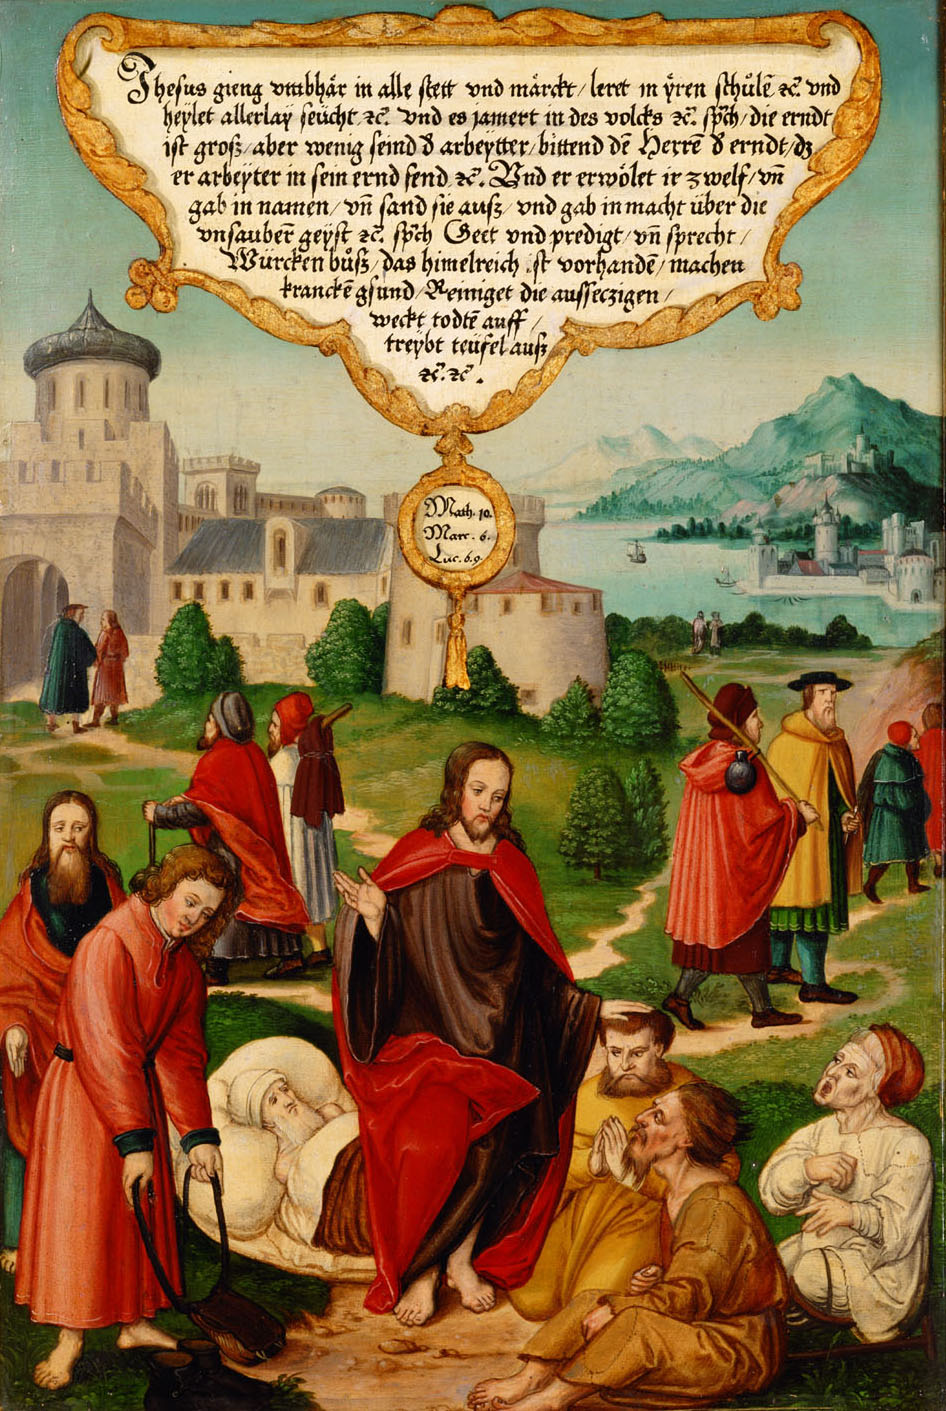 Jhesus gieng vmbhår in alle stett vnd mårckt / leret in ÿren schůlē ⁊c̄. vnd
heÿlet allerlaÿ seücht ⁊c̄. vnd es iamert in des volcks ⁊c̄. sp̄ch / die erndt
ist groß / aber wenig seind d̄ arbeÿtter / bittend dē Herrē d̄ erndt / dz
er arbeÿter in sein ernd send ⁊c̄. Vnd er erwölet ir zwelf / vn̄
gab in namen / vn̄ sand sie auß / vnd gab in macht über die
vnsauberē geÿst ⁊c̄. sp̄ch Geet vnd predigt / vn̄ sprecht /
Würcken bůß / das himelreich ist vorhandē / machen
kranckē gsund / Reiniget die ausseczigen /
weckt todtē auff /
treÿbt teüfel auß
⁊c̄. ⁊c̄.
Math. 10.
Marc. 6.
Luc. 6. 9.